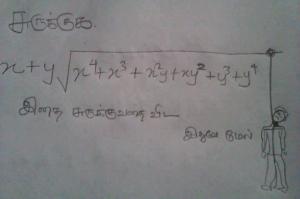 சுருக்குக.
x + y √x⁴ + x³ + x²y + xy² + y³ + y⁴
இதை சுருக்குவதை விட
இதுவே மேல்